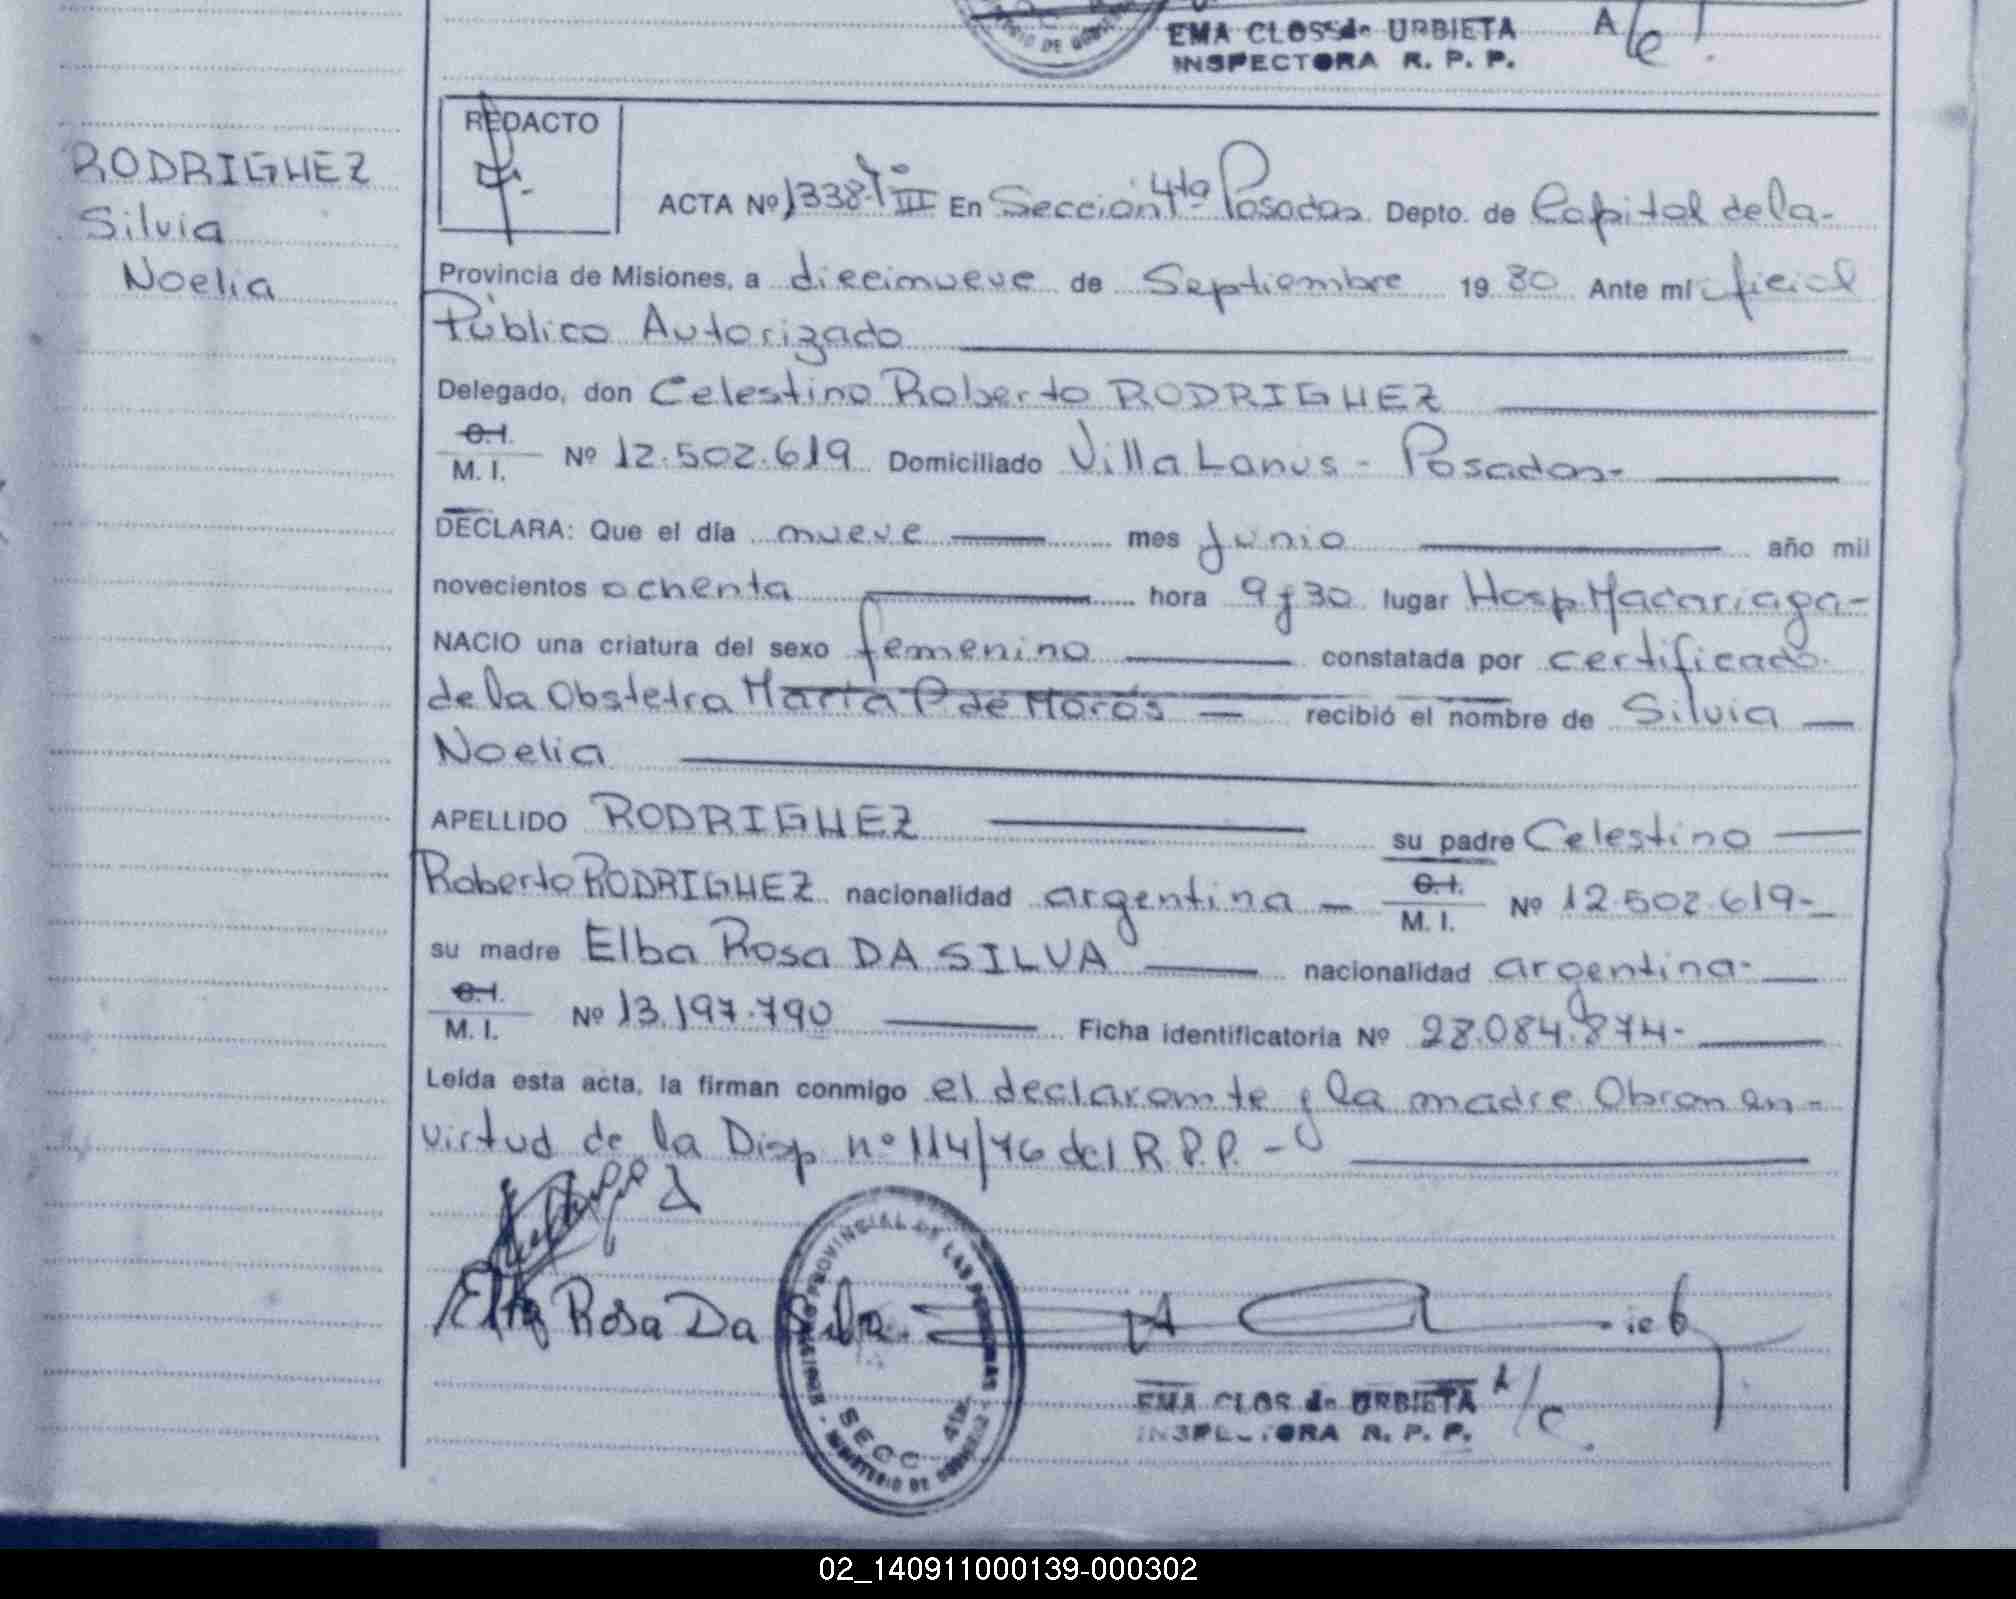 EMA CLOS de URBIETA A/C.
INSPECTORA R. P. P.
RODRIGUEZ
Silvia
Noelia
REDACTO
ACTA Nº 1338-Tº III En Sección 4ta Posadas Depto. de Capital de la-
Provincia de Misiones, a diecinueve de Septiembre 19 80 Ante mí oficial
Público Autorizado
Delegado, don Celestino Roberto RODRIGUEZ
C.I.
M. I. Nº 12.502.619 Domiciliado Villa Lanus - Posadas-
DECLARA: Que el día nueve mes Junio año mil
novecientos ochenta hora 9 y 30 lugar Hosp Madariaga-
NACIO una criatura del sexo femenino constatada por certificado
de la Obstetra María P de Moros recibió el nombre de Silvia
Noelia
APELLIDO RODRIGUEZ su padre Celestino
Roberto RODRIGUEZ nacionalidad argentina - C.I. M. I. Nº 12.502.619-
su madre Elba Rosa DA SILVA nacionalidad argentina-
C.I.
M. I. Nº 13.197.790 Ficha identificatoria Nº 28.084.874-
Leída esta acta, la firman conmigo el declarante y la madre Obran en-
virtud de la Disp nº 114/76 del R.P.P. -
Elba Rosa Da Silva
PROVINCIAL DE LAS PERSONAS
SECC. 4ta.
MINISTERIO DE GOBIERNO
EMA CLOS de URBIETA A/C.
INSPECTORA R. P. P.
02_140911000139-000302